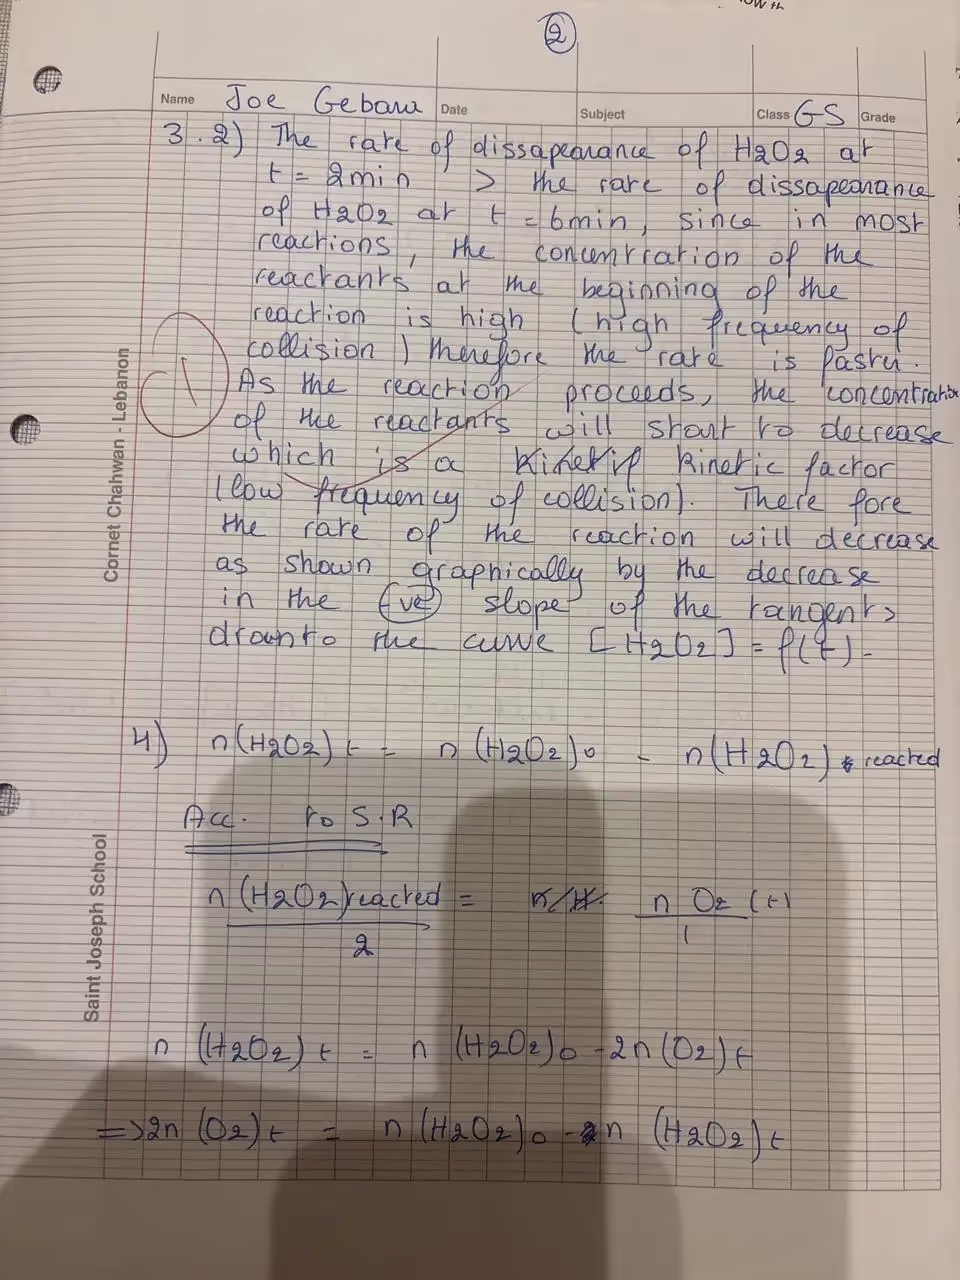 2
Name Joe Gebara Date Subject Class GS Grade
3.2) The rate of dissapearance of H2O2 at
t = 2min > the rate of dissapearance
of H2O2 at t = 6min, since in most
reactions, the concentration of the
reactants at the beginning of the
reaction is high (high frequency of
collision) therefore the rate is faster.
1
As the reaction proceeds, the concentration
of the reactants will start to decrease
which is a kinetic factor
(low frequency of collision). There fore
the rate of the reaction will decrease
as shown graphically by the decrease
in the (-ve) slope of the tangents
drawn to the curve [H2O2] = f(t).
4) n(H2O2)t = n(H2O2)0 - n(H2O2) reacted
Acc. to S.R
n(H2O2)reacted = n O2 (t)
2 1
n (H2O2)t = n (H2O2)0 - 2n(O2)t
=> 2n (O2)t = n(H2O2)0 - n (H2O2)t
Cornet Chahwan - Lebanon
Saint Joseph School